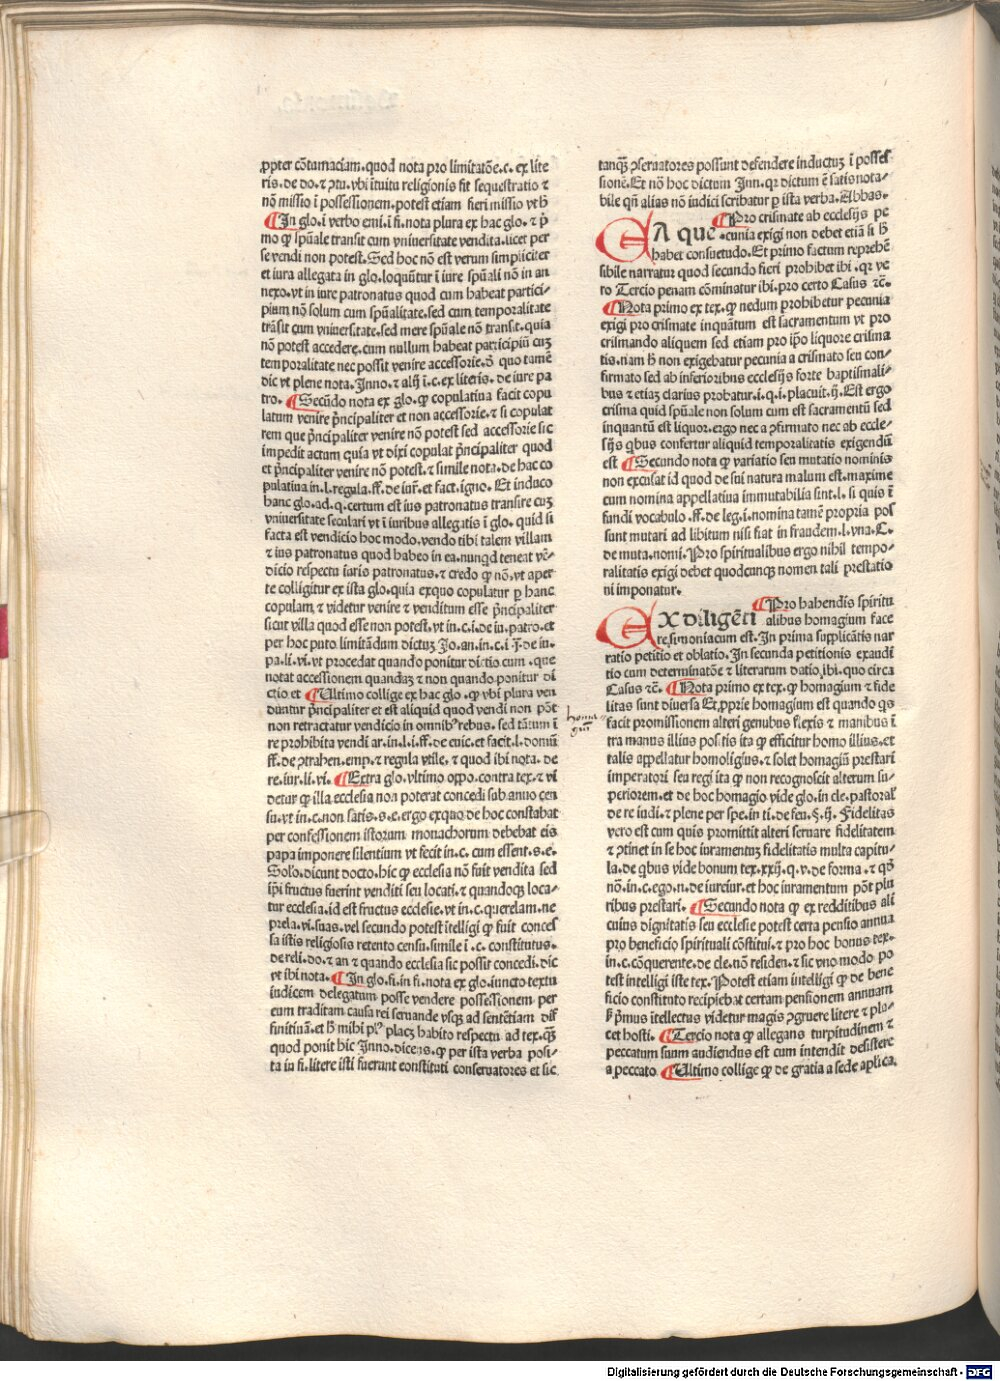 ꝓpter cõtumaciam.quod nota pro limitatõe.c. ex lite
ris.de do.⁊ ꝯtu.vbi ituitu religionis fit sequestratio ⁊
nõ missio i possessionem.potest etiam fieri missio vt h̄
¶In glo.i verbo emi.i fi.nota plura ex hac glo.⁊ p̄
mo ꝙ spũale transit cum vniuersitate vendita.licet per
se vendi non potest. Sed hoc nõ est verum simpliciter
et iura allegata in glo.loquũtur ĩ iure spũali nõ in an
nexo.vt in iure patronatus quod cum habeat partici-
pium nõ solum cum spũalitate.sed cum temporalitate
trãsit cum vniuersitate.sed mere spũale nõ transit.quia
nõ potest accedere.cum nullum habeat participiũ cuꝫ
temporalitate nec possit venire accessorie.ð quo tamẽ
dic vt plene nota. Inno.⁊ alij i.c.ex literis. de iure pa
tro. ¶Secũdo nota ex glo.ꝙ copulatiua facit copu
latum venire p̄ncipaliter et non accessorie.⁊ si copulat
rem que p̄ncipaliter venire nõ potest sed accessorie sic
impedit actum quia vt dixi copulat p̄ncipaliter quod
et p̄ncipaliter venire nõ potest.⁊ simile nota.de hac co
pulatiua in.l.regula.ff.de iur̃.et fact.igno. Et induco
hanc glo.ad.q.certum est ius patronatus transire cuꝫ
vniuersitate seculari vt ĩ iuribus allegatis ĩ glo. quid si
facta est vendicio hoc modo.vendo tibi talem villam
⁊ ius patronatus quod habeo in ea.nunqd teneat vẽ-
dicio respectu iuris patronatus.⁊ credo ꝙ nõ.vt aper
te colligitur ex ista glo.quia exquo copulatur ꝑ hanc
copulam.⁊ videtur venire ⁊ venditum esse p̄ncipaliter
sicut villa quod esse non potest.vt in.c.i.de iu.patro.et
per hoc puto limitãdum dictuꝫ Jo.an.in.c.i .§.de iu.
pa.li.vi.vt procedat quando ponitur dictio cum .que
notat accessionem quandaꝫ ⁊ non quando ponitur di
ctio et ¶Ultimo collige ex hac glo .ꝙ vbi plura ven
duntur p̄ncipaliter et est aliquid quod vendi non põt
non retractatur vendicio in omnibꝰ rebus. sed tãtum ĩ
re prohibita vendi ar.in.l.i.ff.de euic.et facit.l.domũ
ff.de ꝯtrahen.emp.⁊ regula vtile.⁊ quod ibi nota. de
re.iur.li.vi. ¶Extra glo.vltimo oppo.contra tex.⁊ vi
detur ꝙ illa ecclesia non poterat concedi sub annuo cen
su.vt in.c.non satis.s.e.ergo exquo de hoc constabat
per confessionem istorum monachorum debebat eis
papa imponere silentium vt fecit in.c. cum essent.s.e.
Solo.dicunt docto.hic ꝙ ecclesia nõ fuit vendita sed
ipi fructus fuerint venditi seu locati.⁊ quandoqꝫ loca-
tur ecclesia.id est fructus ecclesie.vt in.c.querelam.ne
prela.vi.suas.vel secundo potest itelligi ꝙ fuit conces
sa istis religiosis retento censu.simile ĩ .c. constitutus.
de reli.do.⁊ an ⁊ quando ecclesia sic possit concedi.dic
vt ibi nota. ¶In glo.fi.in fi.nota ex glo.iuncto textu
iudicem delegatum posse vendere possessionem per
eum traditam causa rei seruande vsqꝫ ad sentẽtiam dif
finitiuã.et h̄ mihi plꝰ placꝫ habito respectu ad tex.qꝫ
quod ponit hic Inno.dicens.ꝙ per ista verba posi-
ta in fi.litere isti fuerunt constituti conseruatores et sic
tanqꝫ ꝯseruatores possunt defendere inductuꝫ ĩ posses
sionẽ.Et nõ hoc dictum Inn.qꝛ dictum ẽ satis nota-
bile qñ alias nõ iudici scribatur ꝑ ista verba.Abbas.
¶Pro crismate ab ecclesijs pe
EA que .cunia exigi non debet etiã si h̄
habet consuetudo. Et primo factum reprehẽ
sibile narratur quod secundo fieri prohibet ibi .qꝛ ve
ro Tercio penam cõminatur ibi.pro certo Casus ⁊c̃.
¶Nota primo ex tex.ꝙ nedum prohibetur pecunia
exigi pro crismate inquãtum est sacramentum vt pro
crismando aliquem sed etiam pro ipo liquore crisma
tis.nam h̄ non exigebatur pecunia a crismato seu con-
firmato sed ab inferioribus ecclesijs forte baptismali-
bus ⁊ etiaꝫ clarius probatur.i.q.i.placuit.ij. Est ergo
crisma quid spũale non solum cum est sacramentũ sed
inquantũ est liquor.ergo nec a ꝯfirmato nec ab eccle-
sijs qbus confertur aliquid temporalitatis exigendũ
est ¶Secundo nota ꝙ variatio seu mutatio nominis
non excusat id quod de sui natura malum est.maxime
cum nomina appellatiua immutabilia sint.l. si quis ĩ
fundi vocabulo .ff.de leg.i.nomina tamẽ propria pos
sunt mutari ad libitum nisi fiat in fraudem.l.vna.C.
de muta.nomi.Pro spiritualibus ergo nihil tempo-
ralitatis exigi debet quodcunqꝫ nomen tali prestatio
ni imponatur.
¶Pro habendis spiritu
EX diligẽti alibus homagium face
re,simoniacum est.In prima supplicatio nar
ratio petitio et oblatio.In secunda petitionis exaudi
tio cum determinatõe ⁊ literarum datio,ibi.quo circa
Casus ⁊c̃. ¶Nota primo ex tex.ꝙ homagium ⁊ fide
litas sunt diuersa Et,pprie homagium est quando qs
facit promissionem alteri genubus flexis ⁊ manibus ĩ
tra manus illius positis ita ꝙ efficitur homo illius.et
talis appellatur homoligius.⁊ solet homagiũ prestari
imperatori seu regi ita ꝙ non recognoscit alterum su-
periorem.et de hoc homagio vide glo.in cle.pastoral̃
de re iudi.⁊ plene per spe.in ti.de feu.§.ij. Fidelitas
vero est cum quis promittit alteri seruare fidelitatem
⁊ ꝯtinet in se hoc iuramentuꝫ fidelitatis multa capitu-
la.de qbus vide bonum tex.xxij.q.v.de forma.⁊ qð
nõ.in.c.ego.n.de iureiur.et hoc iuramentum põt plu
ribus prestari. ¶Secundo nota ꝙ ex redditibus ali
cuius dignitatis seu ecclesie potest certa pensio annua
pro beneficio spirituali cõstitui.⁊ pro hoc bonus tex.
in.c.cõquerente.de cle.nõ residen.⁊ sic vno modo po
test intelligi iste tex.Potest etiam intelligi ꝙ de bene
ficio constituto recipiebat certam pensionem annuam
ꝶ p̄mus itellectus videtur magis ꝯgruere litere ⁊ pla-
cet hosti. ¶Tercio nota ꝙ allegans turpitudinem ⁊
peccatum suum audiendus est cum intendit desistere
a peccato ¶Ultimo collige ꝙ de gratia a sede aplica.
Digitalisierung gefördert durch die Deutsche Forschungsgemeinschaft - DFG